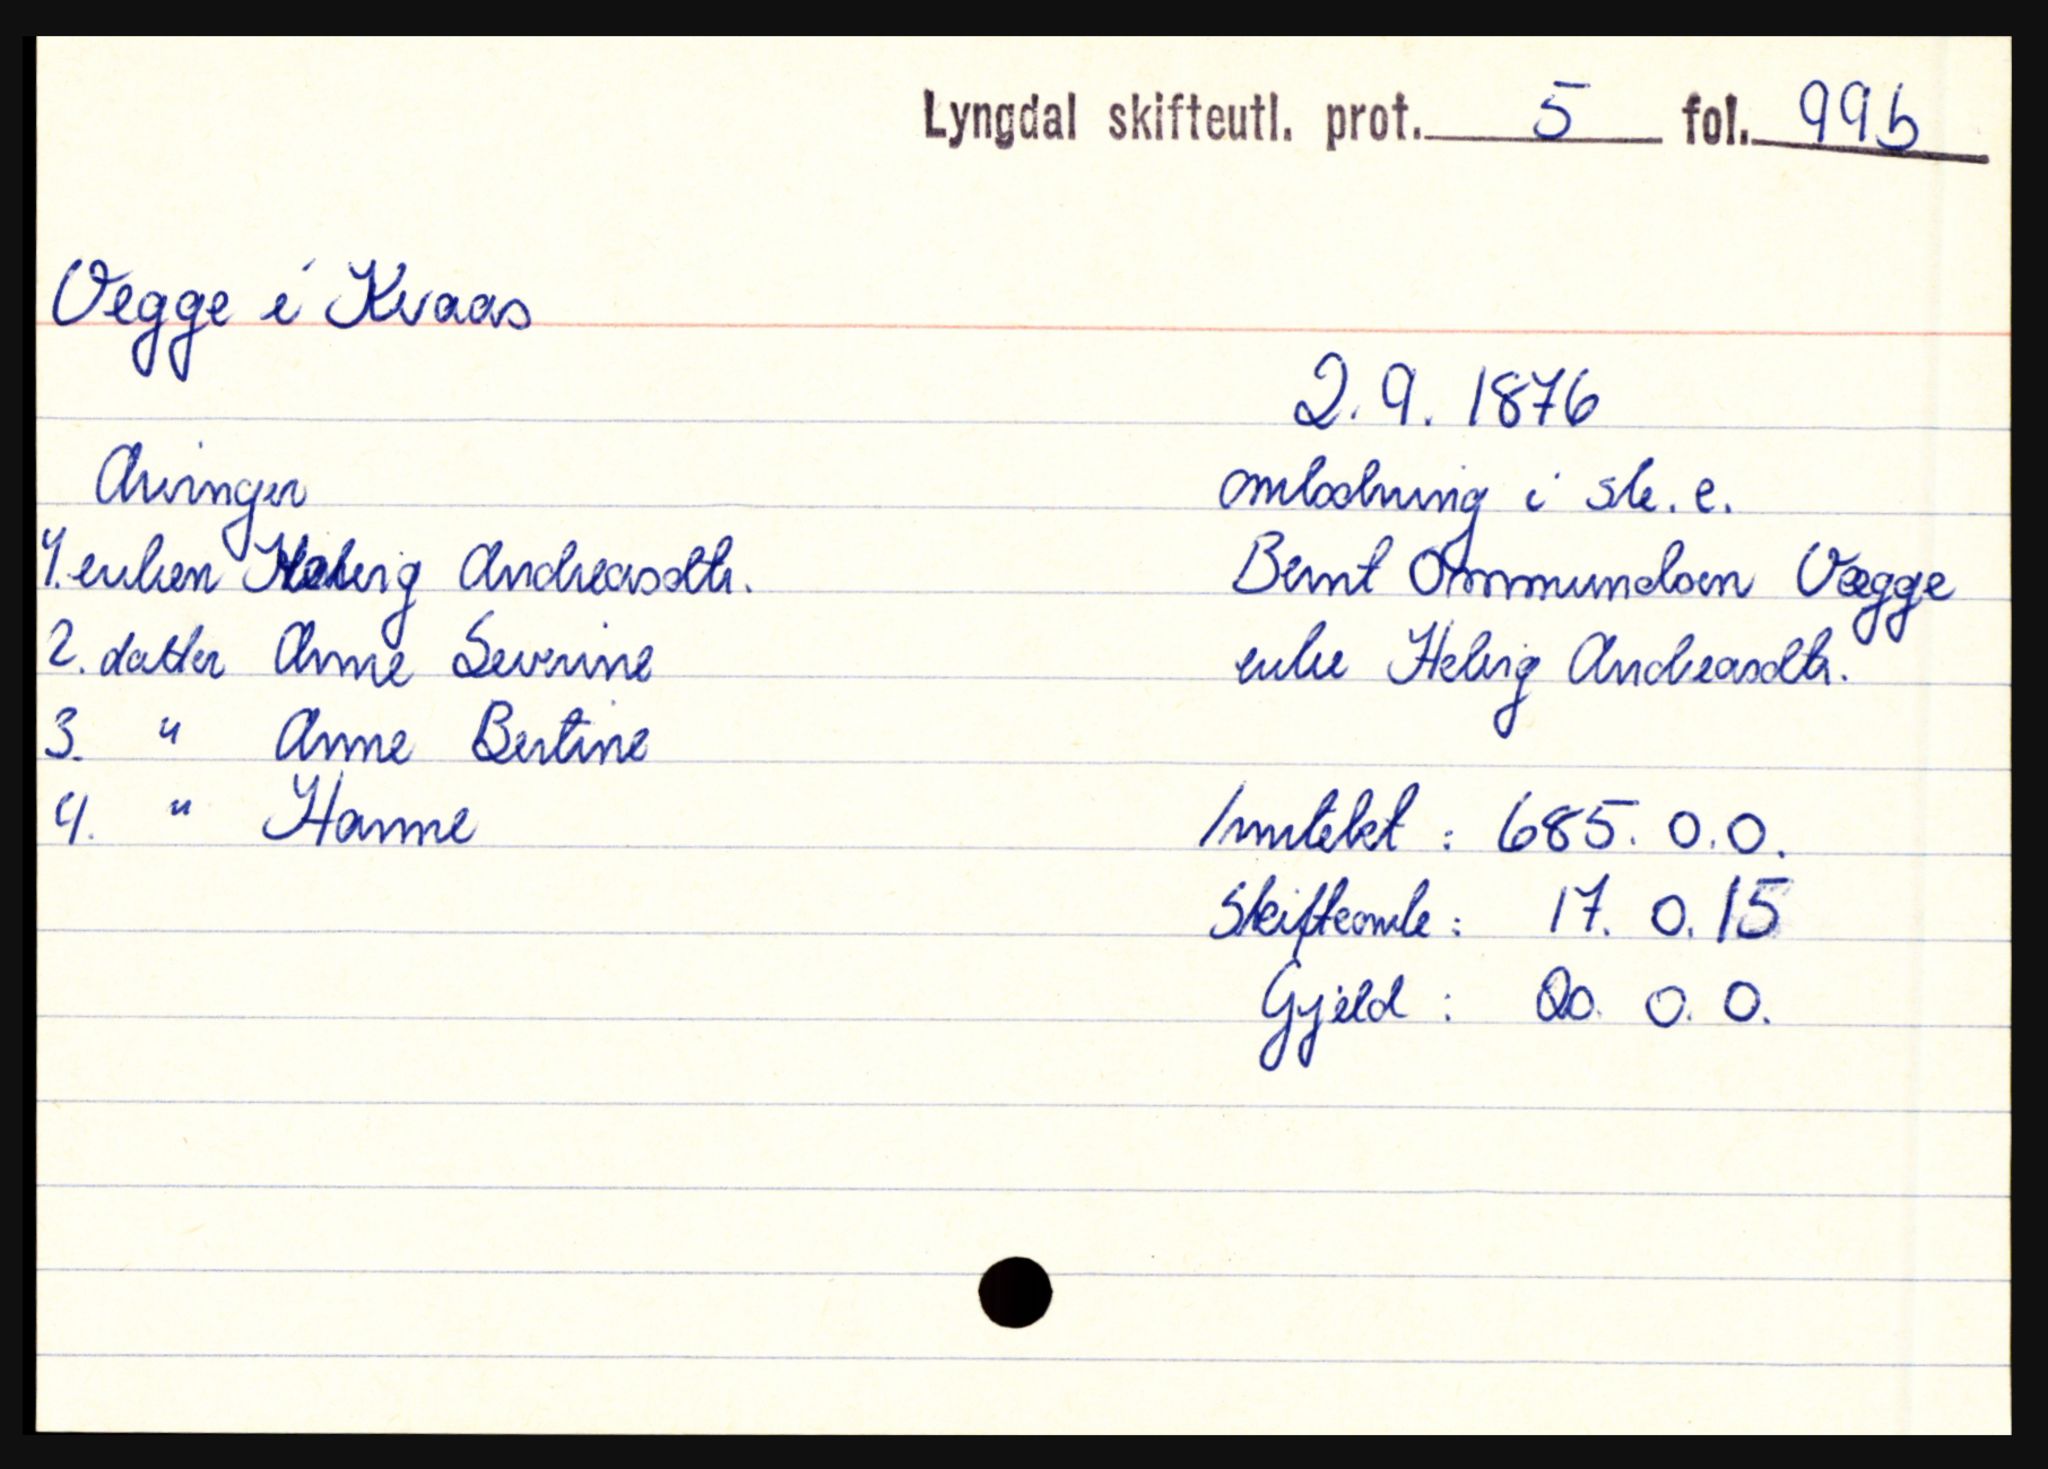 Lyngdal skifteutl. prot. 5 fol. 99b
Vegge i Kvaas
2. 9. 1876
Arvinger
omlodning i sk. e.
1. enken Helvig Andreasdtr.
Bernt Ommundsen Vægge
2. datter Anne Severine
enke Helvig Andreasdtr.
3. " Anne Bertine
4. " Hanne
Inntekt : 685. 0. 0.
Skifteomk : 17. 0. 15
Gjeld : 20. 0. 0.